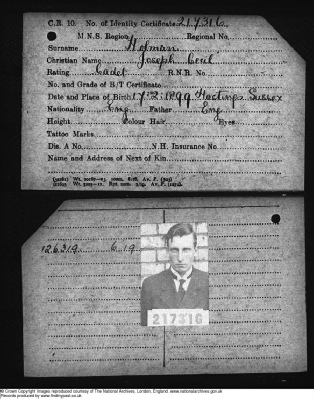 C.R. 10. No. of Identity Certificate 217316
M N.S. Region Regional No.
Surname Holman
Christian Name Joseph Cecil
Rating Cadet R.N.R. No.
No. and Grade of B/T Certificate
Date and Place of Birth 17.2.1899 Hastings Sussex
Nationality Eng Father Eng.
Height Colour Hair Eyes
Tattoo Marks
Dis. A No. N.H. Insurance No.
Name and Address of Next of Kin
12.6.319 6.19
217316
© Crown Copyright Images reproduced courtesy of The National Archives, London, England. www.nationalarchives.gov.uk
Records produced by www.findmypast.co.uk